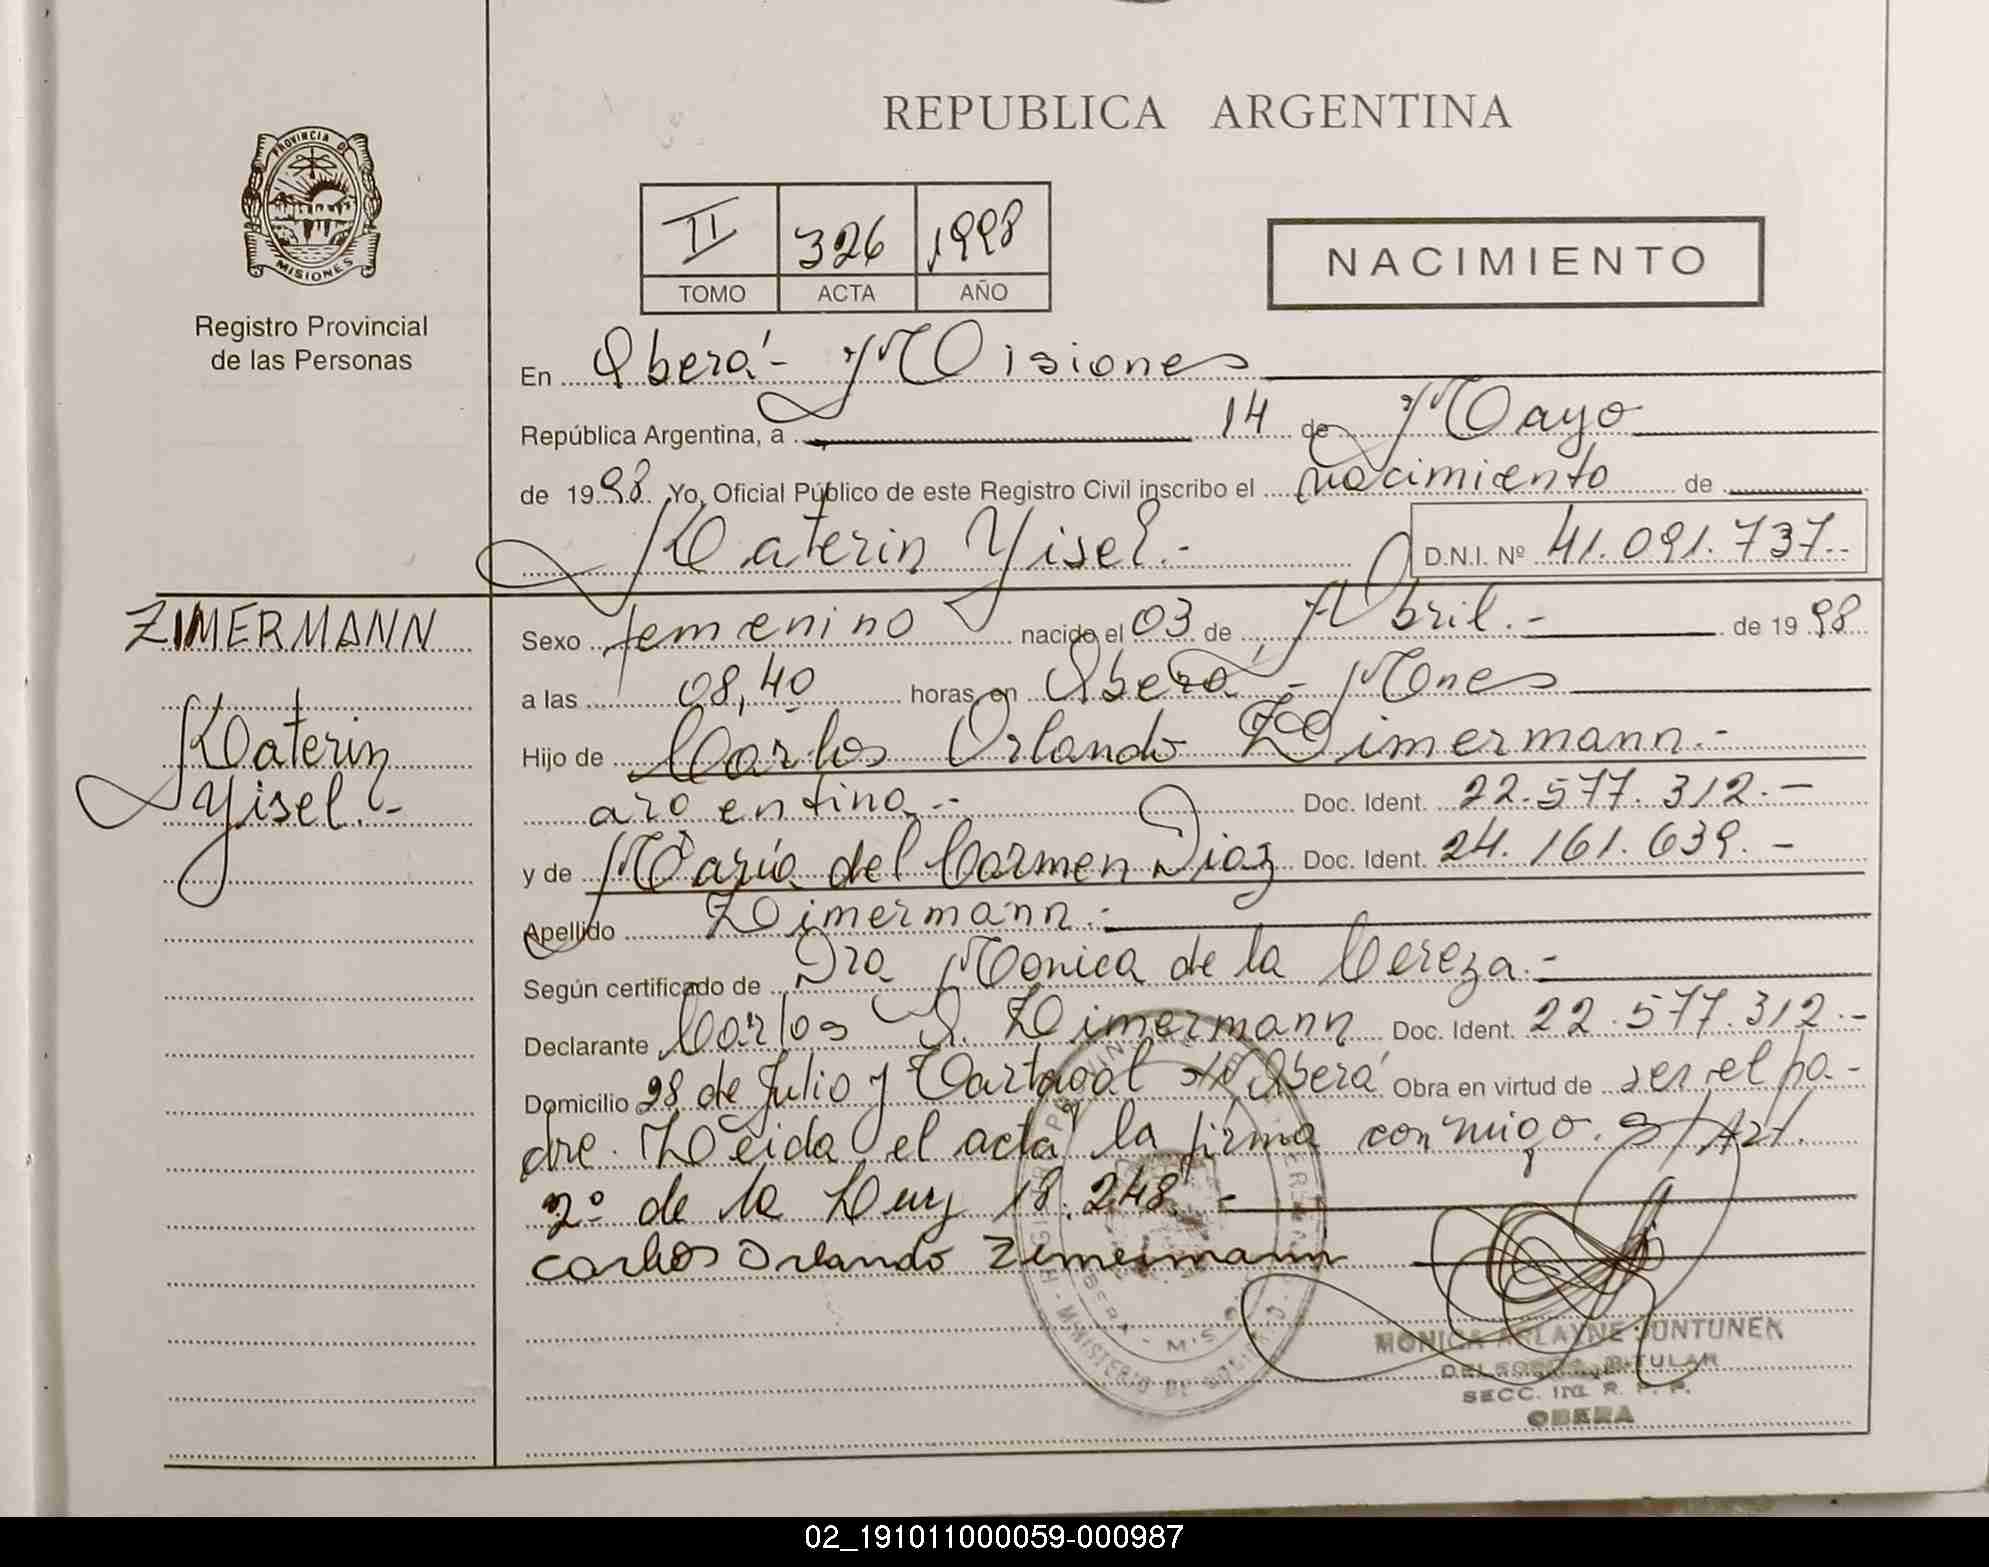 REPUBLICA ARGENTINA
PROVINCIA DE
MISIONES
Registro Provincial
de las Personas
II 326 1998
TOMO ACTA AÑO
NACIMIENTO
En Oberá - Misiones
República Argentina, a 14 de Mayo
de 1998 Yo, Oficial Público de este Registro Civil inscribo el nacimiento de
Katerin Yisel.- D.N.I. Nº 41.091.737.-
ZIMERMANN
Katerin
Yisel.-
Sexo femenino nacido el 03 de Abril.- de 1998
a las 08,40 horas, en Oberá - Mones
Hijo de Carlos Orlando Zimermann.-
argentino.- Doc. Ident. 22.577.312.-
y de María del Carmen Diaz Doc. Ident. 24.161.639.-
Apellido Zimermann.-
Según certificado de Dra Monica de la Cereza.-
Declarante Carlos O. Zimermann Doc. Ident. 22.577.312.-
Domicilio 28 de Julio y Tartagal Oberá Obra en virtud de ser el pa-
dre. Leida el acta la firma conmigo. S/Art.
2º de la Ley 18.248.-
Carlos Orlando Zimermann
MONICA JUNTUNEN
TITULAR
SECC. R. P. P.
OBERA
02_191011000059-000987